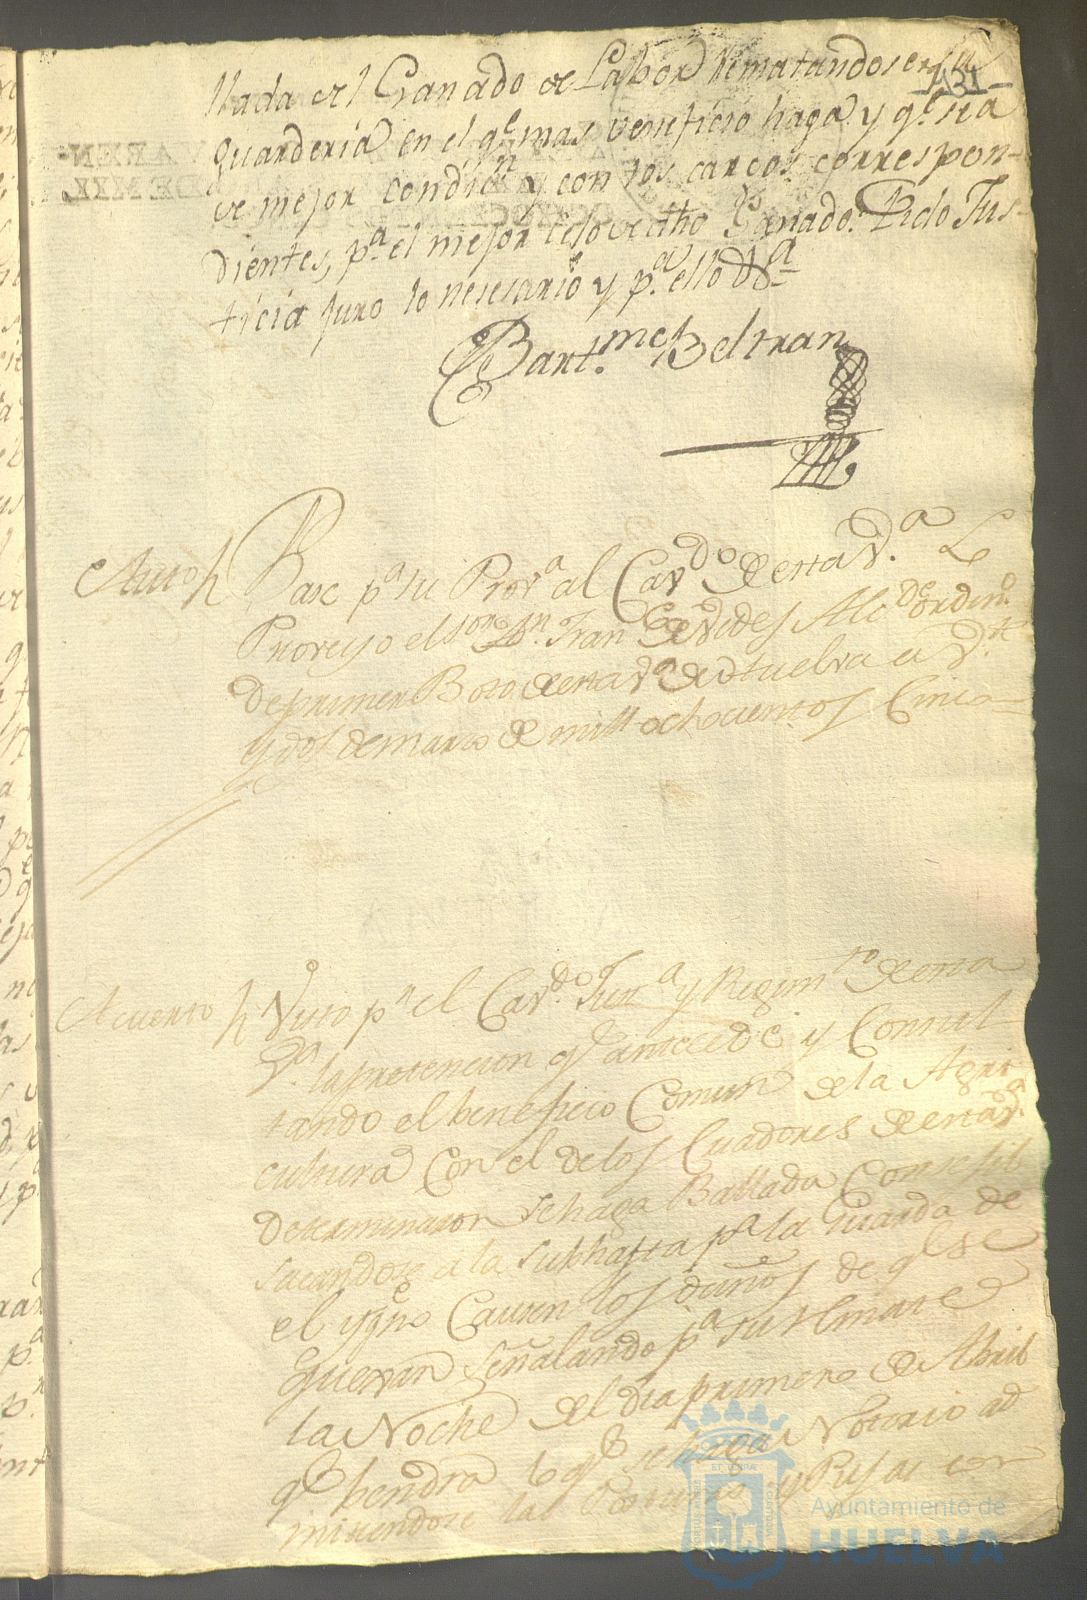 llada de el Ganado de Labor Rematandose en su
131
Guarderia en el qe mas veneficio haga y qe sea
de mejor Condicn y con los cargos correspon-
dientes, pa el mejor celo de dho Ganado. Pido Jus-
ticia Juro lo nesesario y pa ello &a
Bartme Beltran
Auto Pase pa su Prova al Cavdo de esta Va Lo
Proveyo el sor Dn Fran Alcde ordino
de primer Boto de esta Va de Huelva a Vte
y dos de marzo de mill ochocientos Cinco
Acuerdo Visto pr el Cavdo Jusa y Regimto de esta
Va la pretencion qe antecede y Consul
tando el beneficio Comun de la Agri
cultura Con el de los Criadores de esta Va
Determinaron se haga Ballada Consegil
sacandose a la subhasta pa la Guarda de
el y qe no Causen los daños de qe se
quexan señalando pa su Rmate
la Noche del dia primero de Abril
qe bendra lo qe se haga Notorio ad
mitiendose las Posturas y Pujas con
Ayuntamiento de
HUELVA